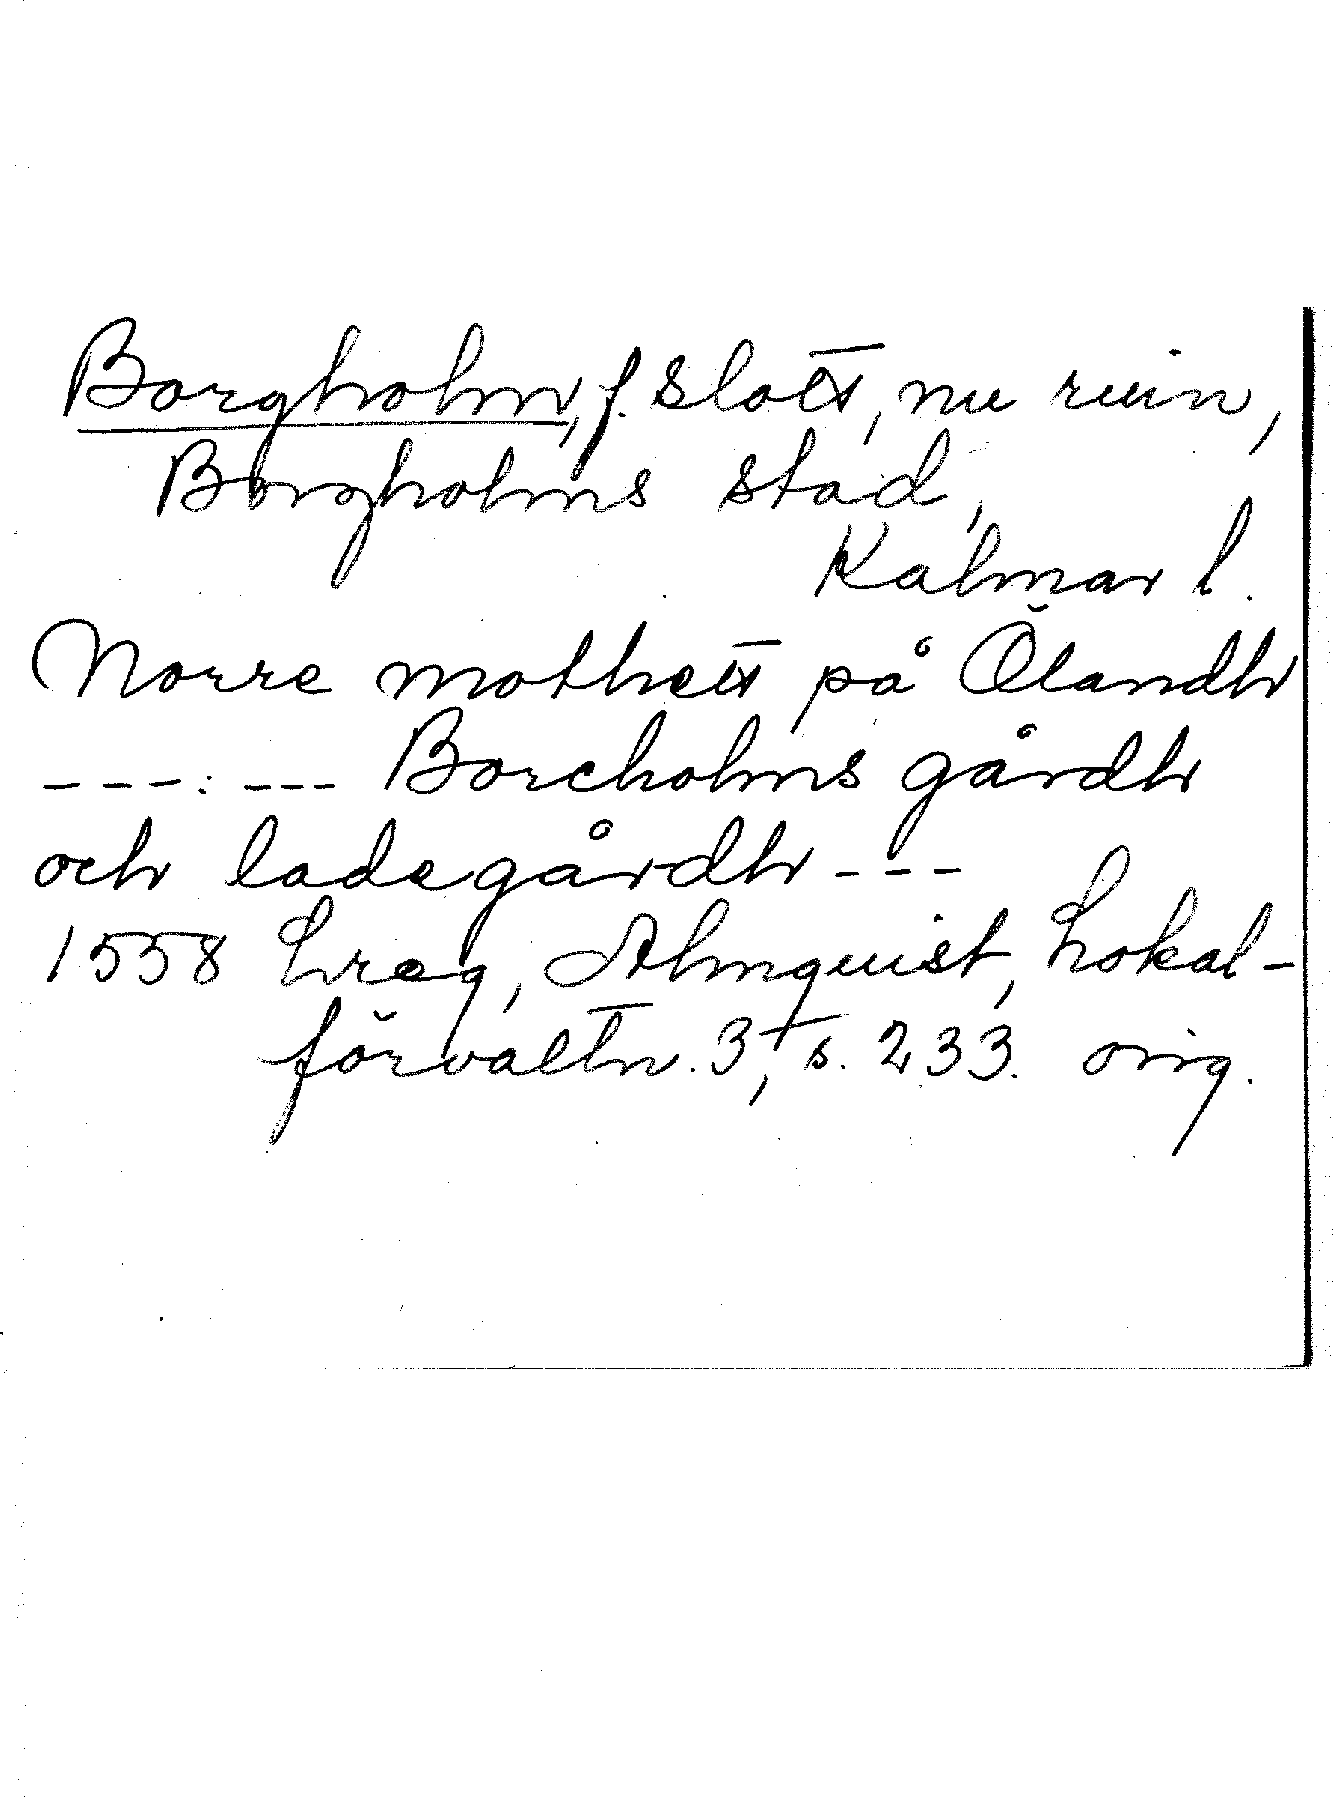 Borgholm, f. slott, nu ruin,
Borgholms stad,
Kalmar l.
Norre mothett på Ölandh
---:--- Borcholms gårdh
och ladegårdh ---
1558 Lreg, Almquist, Lokal-
förvaltn. 3, s. 233. orig.